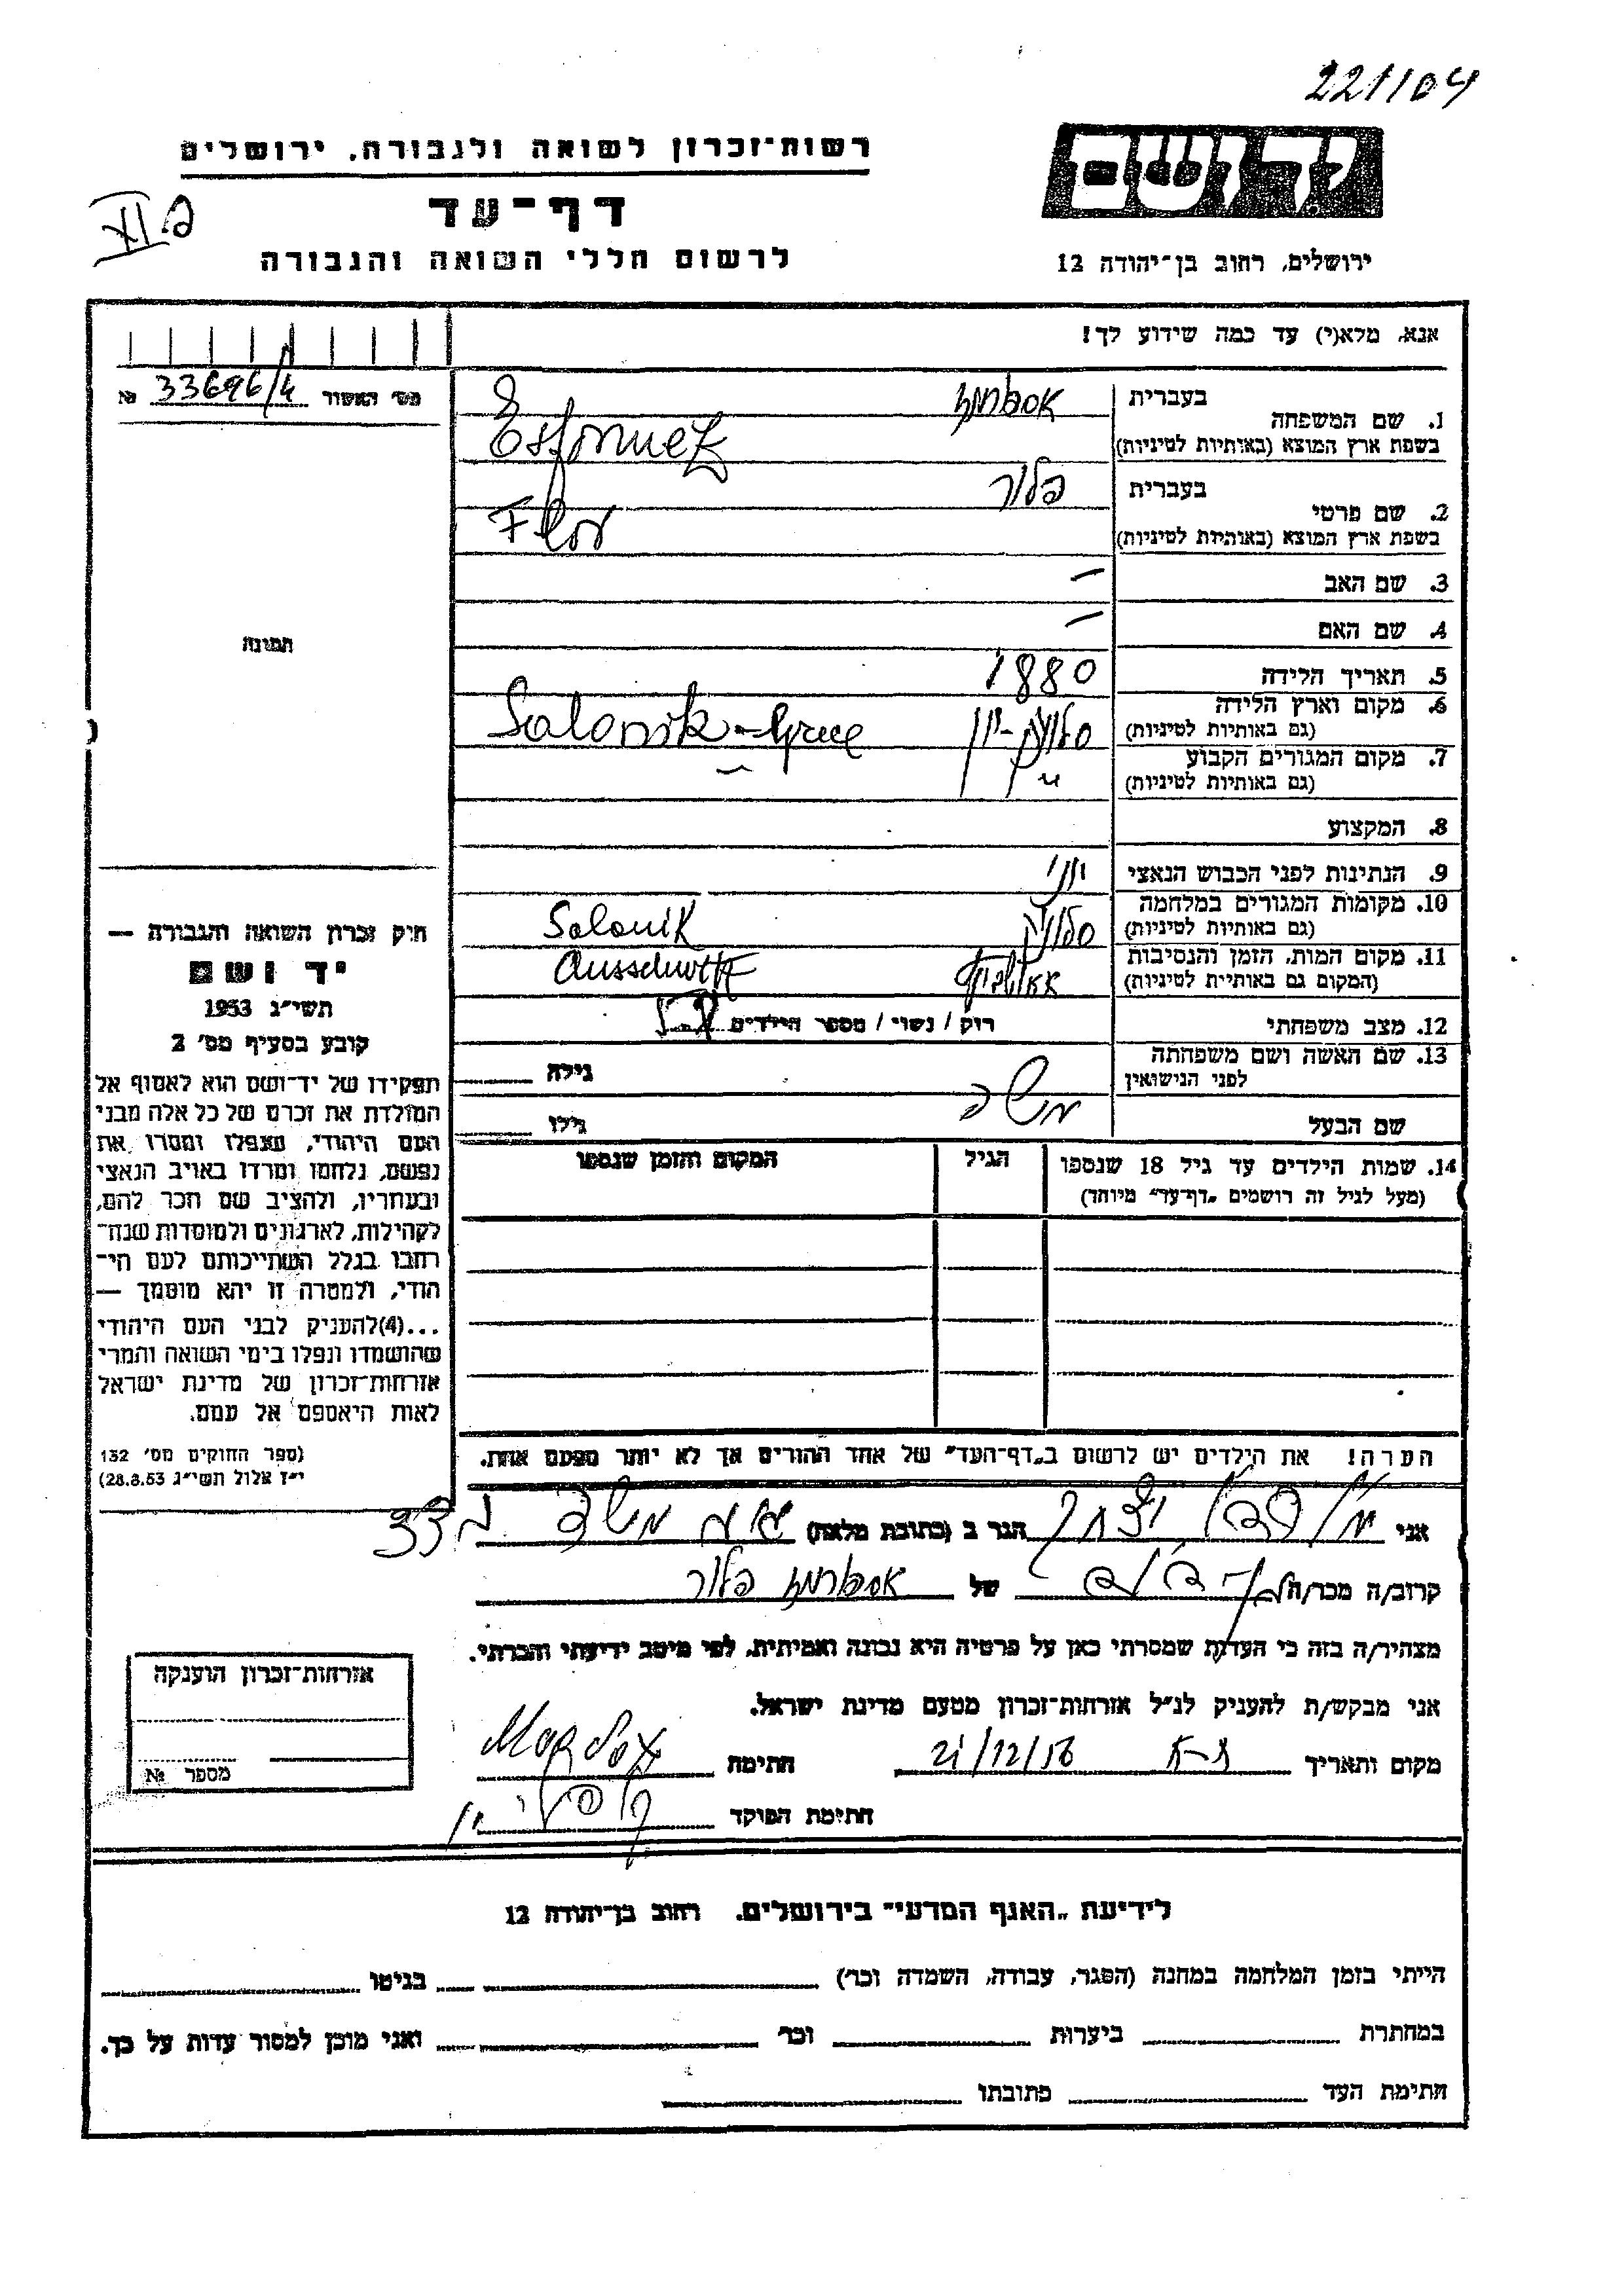 221104
רשות־זכרון לשואה ולגבורה, ירושלים
דף־עד
לרשום חללי השואה והגבורה
יד ושם
ירושלים, רחוב בן־יהודה 12
אנא, מלא(י) עד כמה שידוע לך!
מס׳ האשור № 33696/4
בעברית
1. שם המשפחה
בשפת ארץ המוצא (באותיות לטיניות)
Esformez
בעברית פלור
2. שם פרטי
בשפת ארץ המוצא (באותיות לטיניות)
Flor
3. שם האב —
4. שם האם —
5. תאריך הלידה 1880
6. מקום וארץ הלידה סלוניק - יון
(גם באותיות לטיניות) Salonik - Grece
7. מקום המגורים הקבוע
(גם באותיות לטיניות)
8. המקצוע
9. הנתינות לפני הכבוש הנאצי יוני
10. מקומות המגורים במלחמה סלוניק
(גם באותיות לטיניות) Salonik
11. מקום המות, הזמן והנסיבות
(המקום גם באותיית לטיניות)
12. מצב משפחתי רוק / נשוי / מספר הילדים
13. שם האשה ושם משפחתה
לפני הנישואין
גילה
שם הבעל משה
גילו
14. שמות הילדים עד גיל 18 שנספו
(מעל לגיל זה רושמים „דף־עד״ מיוחד)
הגיל
המקום והזמן שנספו
הערה! את הילדים יש לרשום ב„דף־העד״ של אחד ההורים אך לא יותר מפעם אחת.
תמונה
חוק זכרון השואה והגבורה —
יד ושם
תשי״ג 1953
קובע בסעיף מס׳ 2
תפקידו של יד־ושם הוא לאסוף אל
המולדת את זכרם של כל אלה מבני
העם היהודי, שנפלו ומסרו את
נפשם, נלחמו ומרדו באויב הנאצי
ובעוזריו, ולהציב שם וזכר להם,
לקהילות, לארגונים ולמוסדות שנח־
רחבו בגלל השתייכותם לעם הי־
הודי, ולמטרה זו יהא מוסמך —
...(4)להעניק לבני העם היהודי
שהושמדו ונפלו בימי השואה והמרי
אזרחות־זכרון של מדינת ישראל
לאות היאספם אל עמם.
(ספר החוקים מס׳ 132
י״ז אלול תשי״ג 28.8.53)
אני הגר ב (כתובת מלאה)
קרוב/ה מכר/ה של פלור
מצהיר/ה בזה כי העדות שמסרתי כאן על פרטיה היא נכונה ואמיתית, לפי מיטב ידיעתי והכרתי.
אני מבקש/ת להעניק לנ״ל אזרחות־זכרון מטעם מדינת ישראל.
מקום ותאריך ת-א 21/12/56 חתימה
חתימת הפוקד
אזרחות־זכרון הוענקה
מספר №
לידיעת „האגף המדעי״ בירושלים. רחוב בן־יהודה 12
הייתי בזמן המלחמה במחנה (הסגר, עבודה, השמדה וכר׳) בגיטו
במחתרת ביערות וכר׳ ואני מוכן למסור עדות על כך.
חתימת העד כתובתו